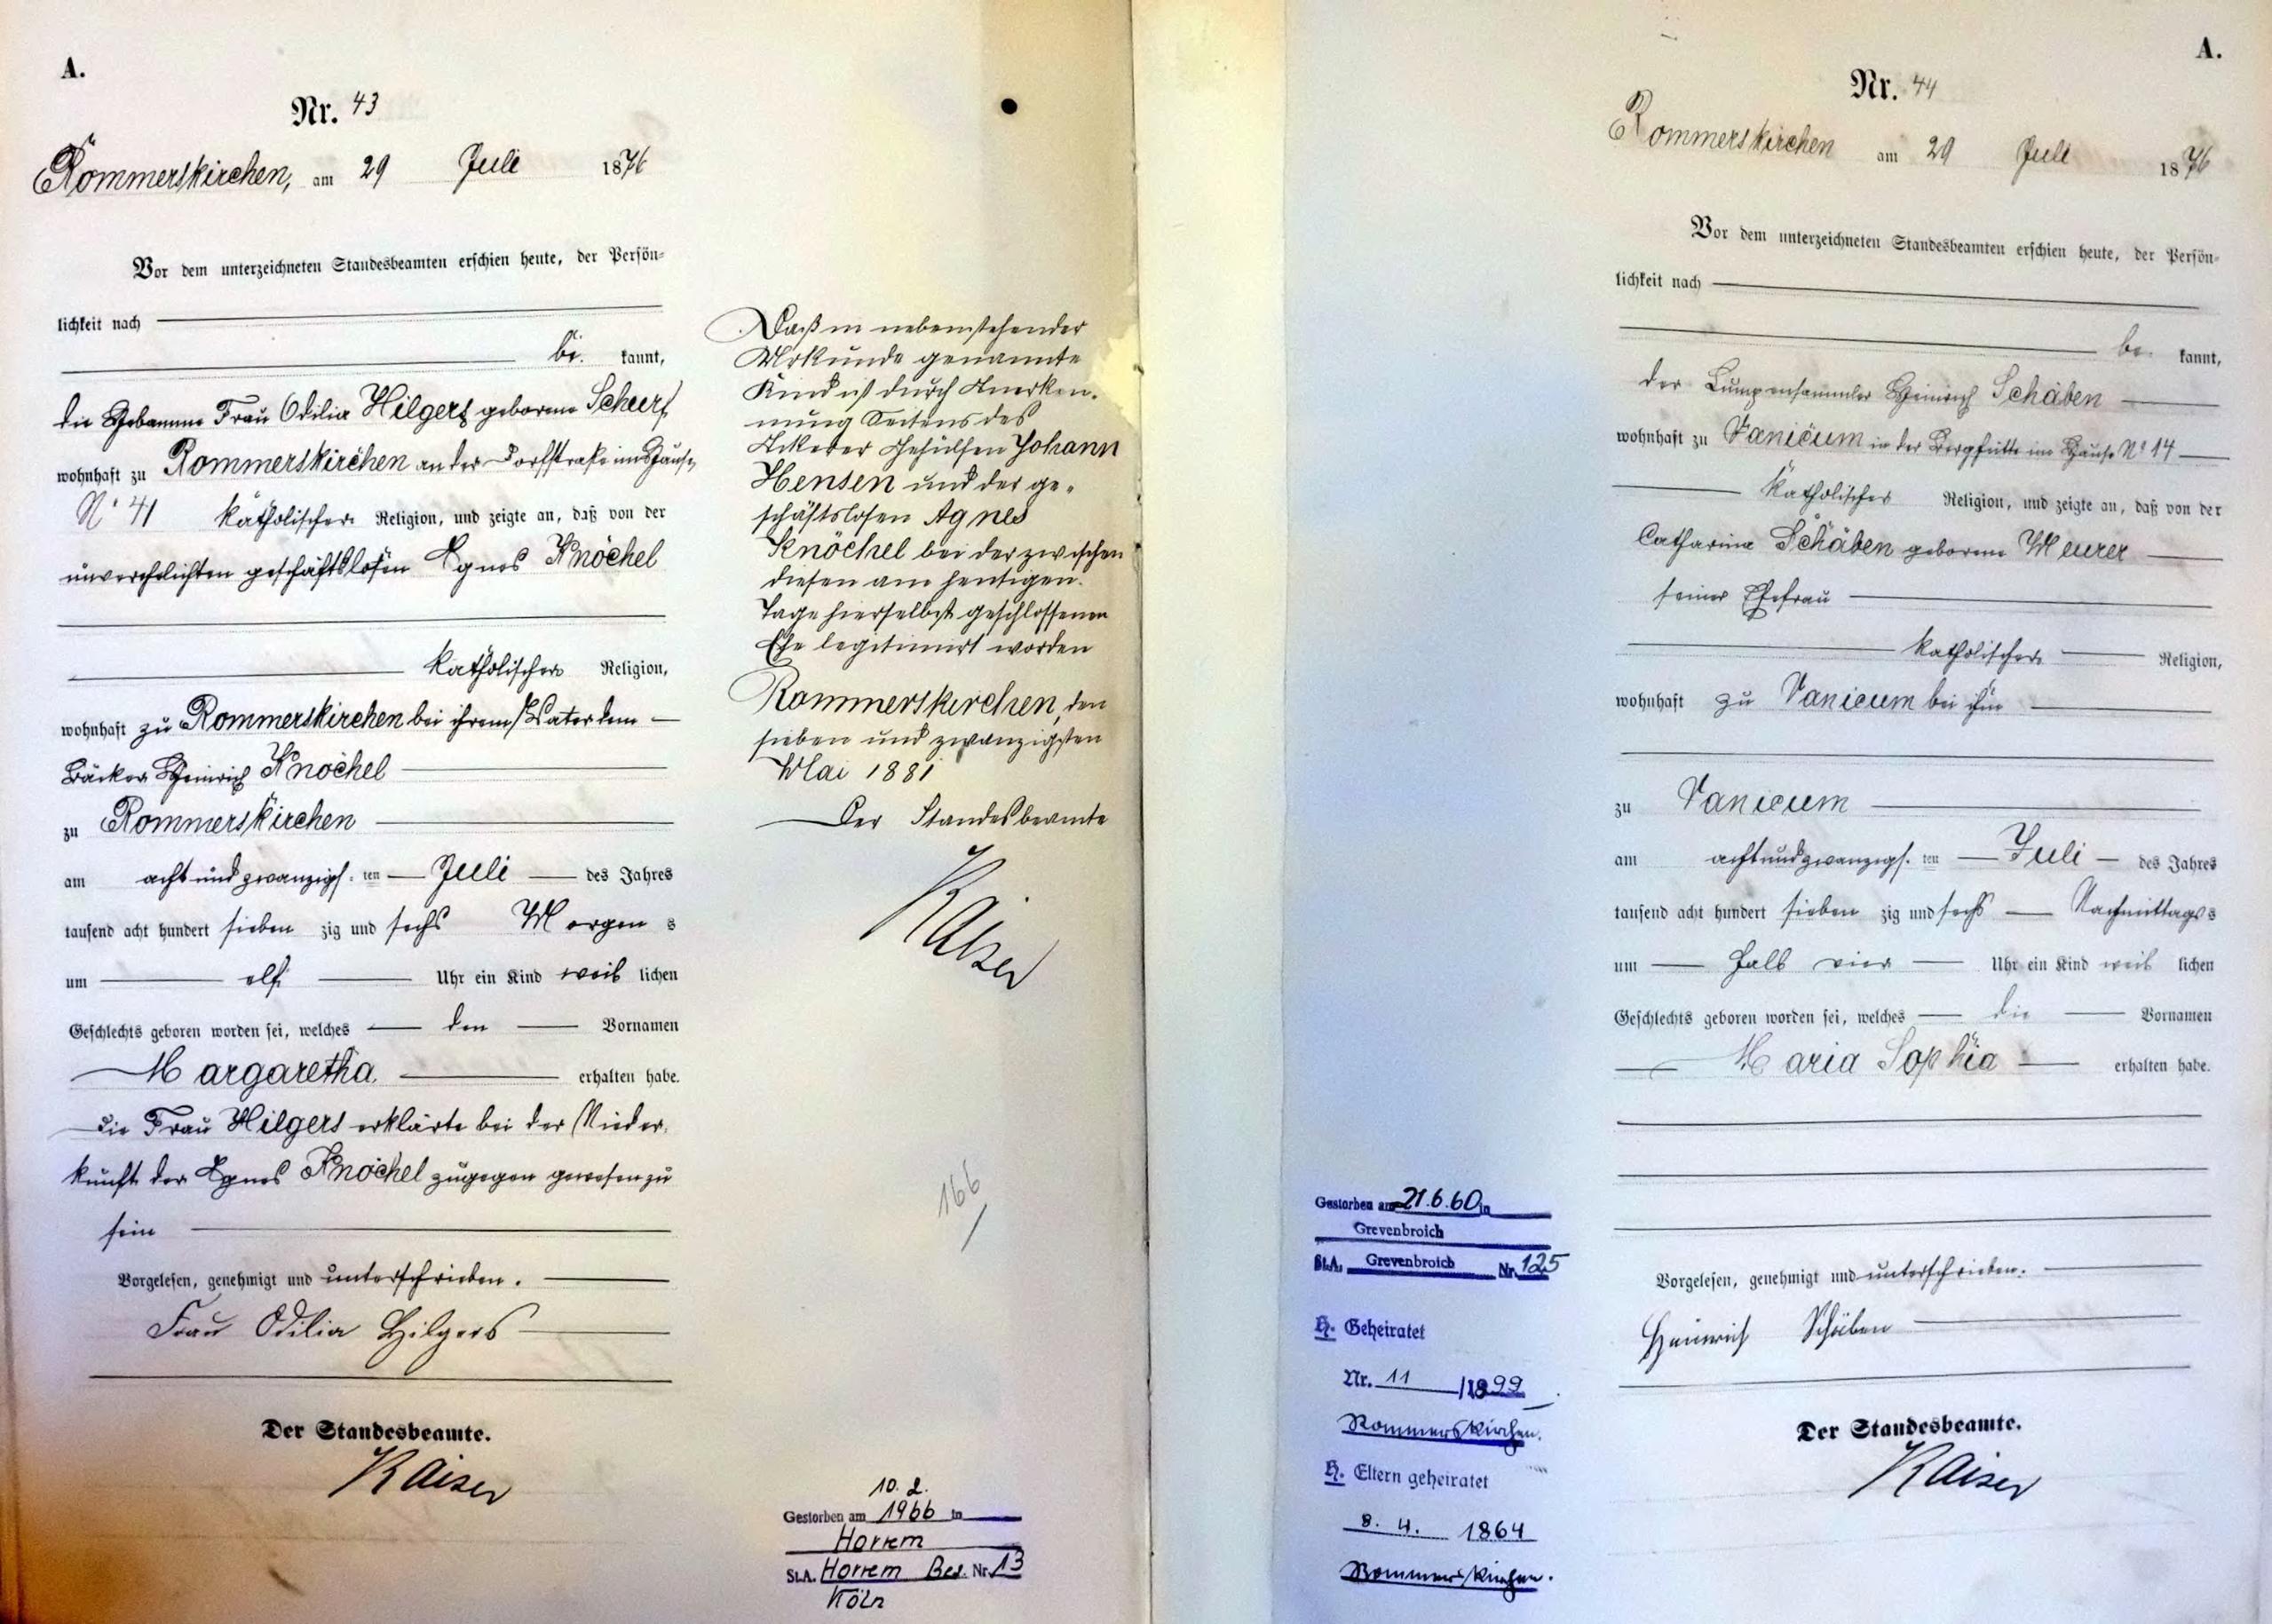 A.
Nr. 43
Rommerskirchen, am 29 Juli 1876
Vor dem unterzeichneten Standesbeamten erschien heute, der Persön-
lichkeit nach
be. kannt,
die Hebamme Frau Odilia Hilgers geborene Scheer
wohnhaft zu Rommerskirchen an der Dorfstraße im Hause
No 41 katholischer Religion, und zeigte an, daß von der
unverehelichten geschäftslosen Agnes Knöchel
katholischer Religion,
wohnhaft zu Rommerskirchen bei ihrem Vater dem
Bäcker Heinrich Knöchel
zu Rommerskirchen
am acht und zwanzigs. ten Juli des Jahres
tausend acht hundert sieben zig und sechs Morgen s
um elf Uhr ein Kind weib lichen
Geschlechts geboren worden sei, welches den Vornamen
Margaretha erhalten habe.
Die Frau Hilgers erklärte bei der Nieder-
kunft der Agnes Knöchel zugegen gewesen zu
sein
Vorgelesen, genehmigt und unterschrieben.
Frau Odilia Hilgers
Der Standesbeamte.
Kaiser
Daß in nebenstehender
Urkunde genannte
Kind ist durch Anerken-
nung Seitens des
Ackerer Gehülfen Johann
Hensen und der ge-
schäftslosen Agnes
Knöchel bei der zwischen
diesen am heutigen
Tage hierselbst geschlossenen
Ehe legitimirt worden
Rommerskirchen, den
sieben und zwanzigsten
Mai 1881
Der Standesbeamte
Kaiser
166
10. 2.
Gestorben am 1966 in
Horrem
St.A. Horrem Bez. Nr. 13
Köln
A.
Nr. 44
Rommerskirchen am 29 Juli 1876
Vor dem unterzeichneten Standesbeamten erschien heute, der Persön-
lichkeit nach
be. kannt,
der Lumpensammler Heinrich Schäben
wohnhaft zu Vanicum in der im Hause No 14
katholischer Religion, und zeigte an, daß von der
Catharina Schäben geborene Meurer
seiner Ehefrau
katholischer Religion,
wohnhaft zu Vanicum bei ihm
zu Vanicum
am acht und zwanzigs. ten Juli des Jahres
tausend acht hundert sieben zig und sechs Nachmittags s
um halb vier Uhr ein Kind weib lichen
Geschlechts geboren worden sei, welches die Vornamen
Maria Sophia erhalten habe.
Vorgelesen, genehmigt und unterschrieben.
Heinrich Schäben
Der Standesbeamte.
Kaiser
Gestorben am 21.6.60 in
Grevenbroich
St.A. Grevenbroich Nr. 125
H. Geheiratet
Nr. 11 /1899
Rommerskirchen.
H. Eltern geheiratet
8. 4. 1864
Rommerskirchen.